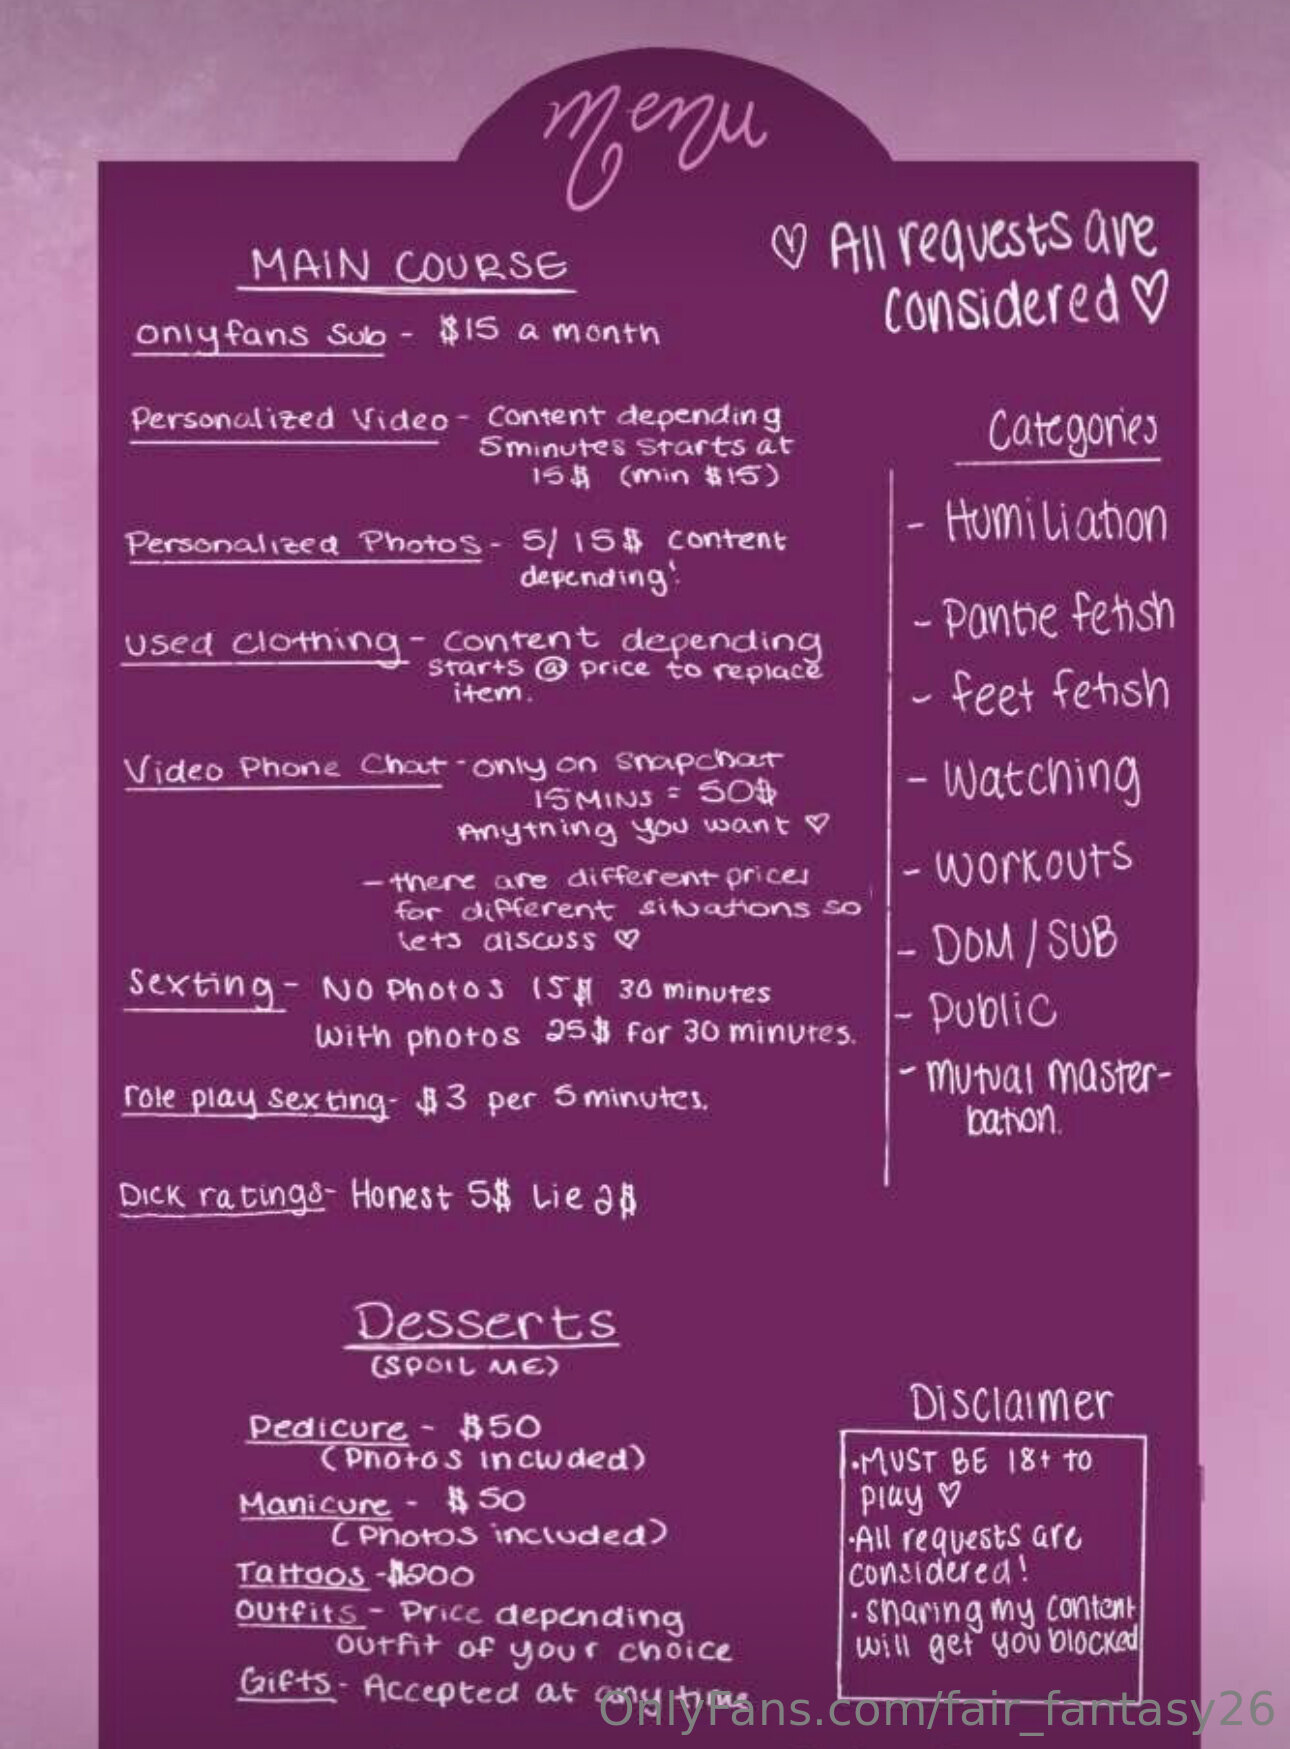 menu
♡ All requests are
considered ♡
MAIN COURSE
onlyfans Sub - $15 a month
Personalized Video - Content depending
5minutes starts at
15$ (min $15)
Personalized Photos - 5/15$ content
depending!
used clothing - content depending
starts @ price to replace
item.
Video Phone Chat - only on snapchat
15 MINS = 50$
Anything you want ♡
- there are different prices
for different situations so
lets discuss ♡
Sexting - NO Photos 15$ 30 minutes
With photos 25$ for 30 minutes.
role play sexting - $3 per 5 minutes.
Dick ratings - Honest 5$ Lie 2$
Categories
- Humiliation
- Pantie fetish
- feet fetish
- Watching
- Workouts
- DOM / SUB
- Public
- mutual master-
bation.
Desserts
(SPOIL ME)
Pedicure - $50
(Photos included)
Manicure - $50
(Photos included)
Tattoos - $200
Outfits - Price depending
outfit of your choice
Gifts - Accepted at any time
Disclaimer
• MUST BE 18+ TO
play ♡
• All requests are
considered!
• sharing my content
will get you blocked
OnlyFans.com/fair_fantasy26